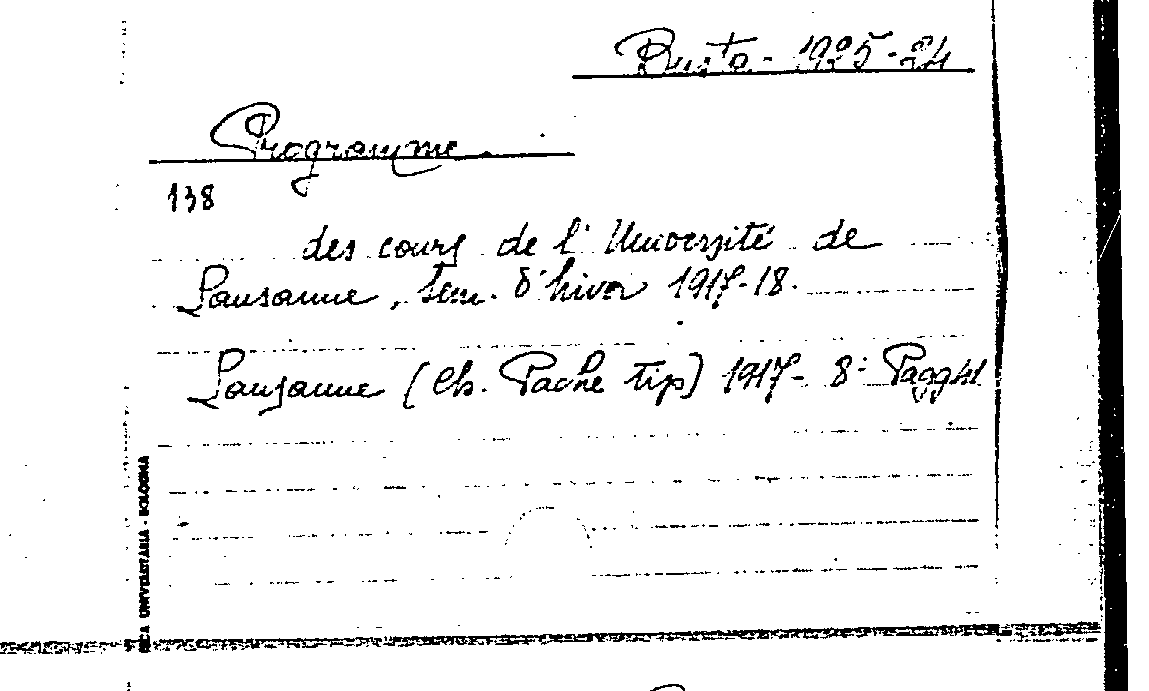 Busta - 1925-24
Programme
138
des cours de l'Université de
Lausanne, sem. d'hiver 1917-18.
Lausanne (Ch. Pache tip) 1917- 8° Pagg 41
ECA UNIVERSITARIA - BOLOGNA